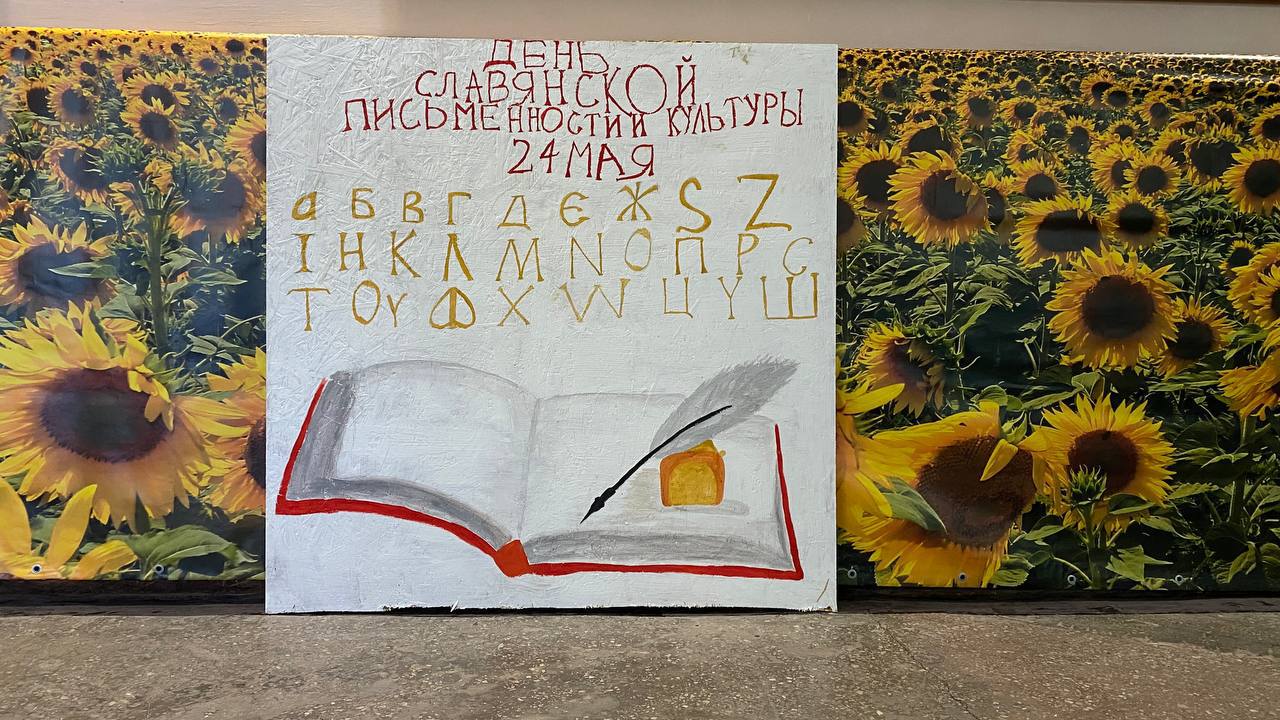 ДЕНЬ
СЛАВЯНСКОЙ
ПИСЬМЕННОСТИ И КУЛЬТУРЫ
24 МАЯ
а Б В Г Д Є Ж Ѕ Z
І Н К Л М N О П Р С
Т Оу Ф Х W Ц Y Ш